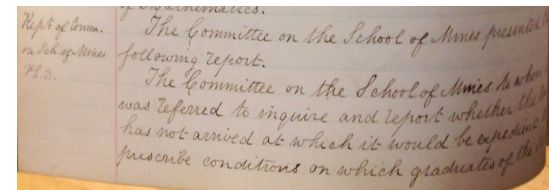 of Mathematics.
Rept of Comm.
on Sch. of Mines
Ph.D.
The Committee on the School of Mines presented
following report.
The Committee on the School of Mines to whom
was referred to inquire and report whether the
has not arrived at which it would be expedient
prescribe conditions on which graduates of the